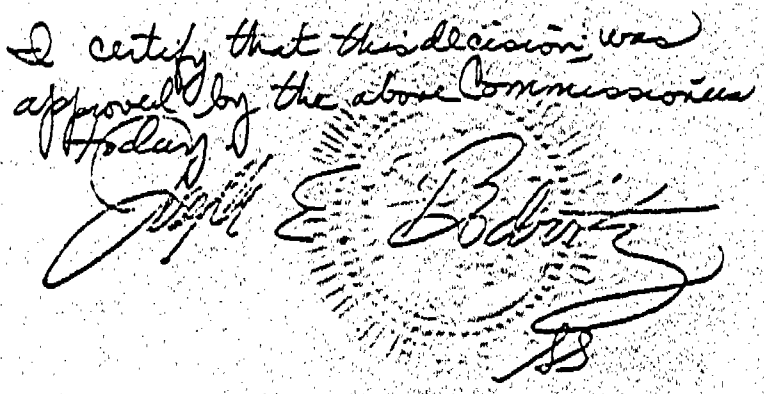 I certify that this decision was
approved by the above Commissioners
today.
Joseph E Bodovitz
SS